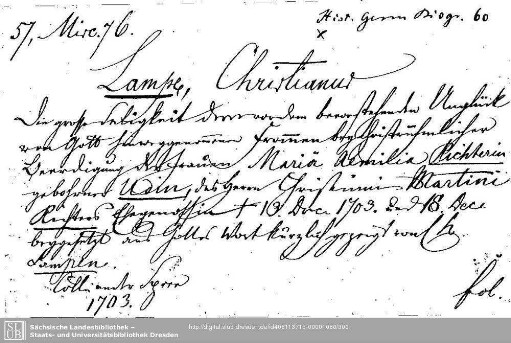 57, Misc. 76.
Hist. Germ. Biogr. 60
x
Lampe, Christianus
Die große Seligkeit derer vor dem bevorstehenden Unglück
von Gott hinweggenommenen Frommen bey Christrühmlicher
Beerdigung der Frauen Mariä Aemilia Richterin
gebohrnen Udin, des Herrn Christiani Martini
Richters Ehegenoßin † 13. Dec. 1703. und 18. Dec.
beygesetzt aus Gottes Wort kürzlich gezeigt von Ch.
Lampen.
Cölln an der Spree
1703.
fol.
Sächsische Landesbibliothek –
Staats- und Universitätsbibliothek Dresden